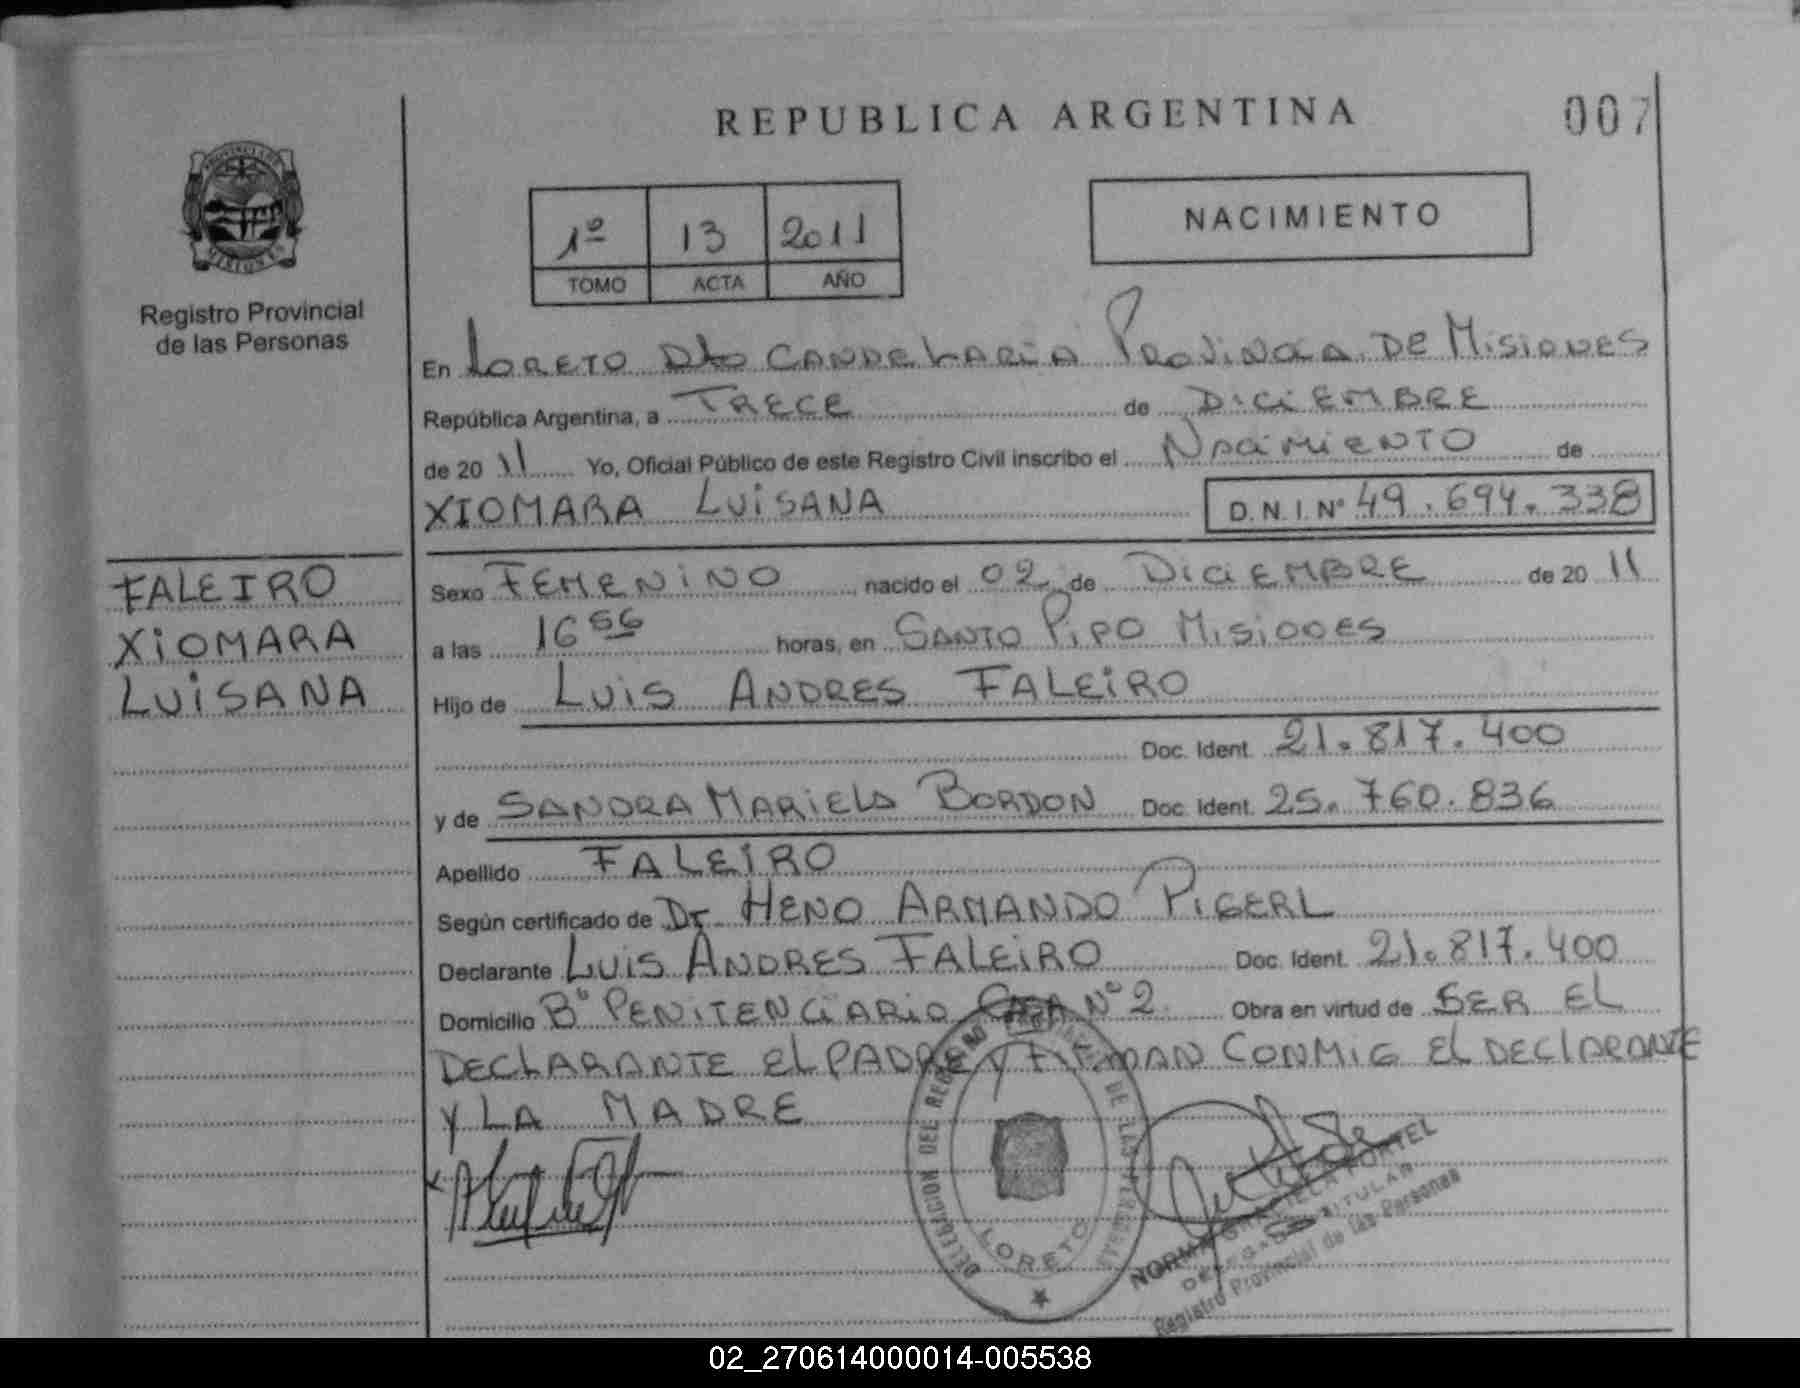 REPUBLICA ARGENTINA
007
PROVINCIA DE
MISIONES
Registro Provincial
de las Personas
1º 13 2011
TOMO ACTA AÑO
NACIMIENTO
En LORETO Dto CANDELARIA PROVINCIA DE MISIONES
República Argentina, a TRECE de DICIEMBRE
de 20 11 Yo, Oficial Público de este Registro Civil inscribo el NACIMIENTO de
XIOMARA LUISANA D.N.I. Nº 49.694.338
FALEIRO
XIOMARA
LUISANA
Sexo FEMENINO, nacido el 02 de DICIEMBRE de 20 11
a las 16 56 horas, en SANTO PIPO MISIONES
Hijo de LUIS ANDRES FALEIRO
Doc. Ident. 21.817.400
y de SANDRA MARIELA BORDON Doc. Ident. 25.760.836
Apellido FALEIRO
Según certificado de Dr HENO ARMANDO PIGERL
Declarante LUIS ANDRES FALEIRO Doc. Ident. 21.817.400
Domicilio Bº PENITENCIARIO CASA Nº 2 Obra en virtud de SER EL
DECLARANTE EL PADRE Y FIRMAN CONMIG EL DECLARANTE
Y LA MADRE
DELEGACION DEL REGISTRO DE LAS PERSONAS
LORETO
NORMA GRACIELA PORTEL
DELEGADA TITULAR
Registro Provincial de las Personas
02_270614000014-005538